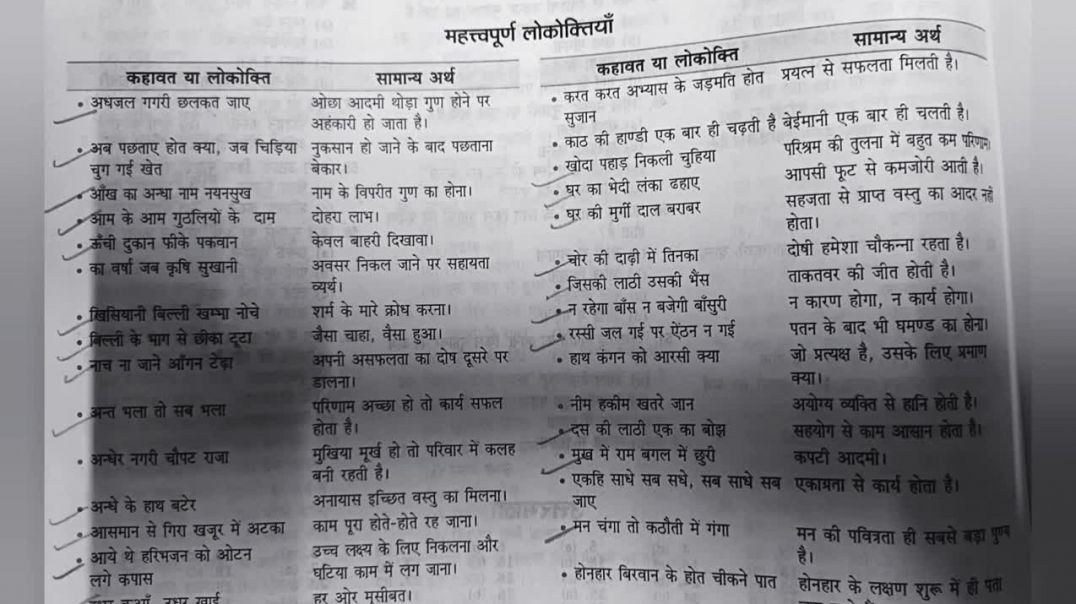 महत्त्वपूर्ण लोकोक्तियाँ
कहावत या लोकोक्ति सामान्य अर्थ
• अधजल गगरी छलकत जाए ओछा आदमी थोड़ा गुण होने पर
अहंकारी हो जाता है।
• अब पछताए होत क्या, जब चिड़िया नुकसान हो जाने के बाद पछताना
चुग गई खेत बेकार।
• आँख का अन्धा नाम नयनसुख नाम के विपरीत गुण का होना।
• आम के आम गुठलियों के दाम दोहरा लाभ।
• ऊँची दुकान फीके पकवान केवल बाहरी दिखावा।
• का वर्षा जब कृषि सुखानी अवसर निकल जाने पर सहायता
व्यर्थ।
• खिसियानी बिल्ली खम्भा नोचे शर्म के मारे क्रोध करना।
• बिल्ली के भाग से छीका टूटा जैसा चाहा, वैसा हुआ।
• नाच ना जाने आँगन टेढ़ा अपनी असफलता का दोष दूसरे पर
डालना।
• अन्त भला तो सब भला परिणाम अच्छा हो तो कार्य सफल
होता है।
• अन्धेर नगरी चौपट राजा मुखिया मूर्ख हो तो परिवार में कलह
बनी रहती है।
• अन्धे के हाथ बटेर अनायास इच्छित वस्तु का मिलना।
• आसमान से गिरा खजूर में अटका काम पूरा होते-होते रह जाना।
• आये थे हरिभजन को ओटन उच्च लक्ष्य के लिए निकलना और
लगे कपास घटिया काम में लग जाना।
कुआँ, उधर खाई हर ओर मुसीबत।
कहावत या लोकोक्ति सामान्य अर्थ
• करत करत अभ्यास के जड़मति होत प्रयत्न से सफलता मिलती है।
सुजान
• काठ की हाण्डी एक बार ही चढ़ती है बेईमानी एक बार ही चलती है।
• खोदा पहाड़ निकली चुहिया परिश्रम की तुलना में बहुत कम परिणाम।
• घर का भेदी लंका ढहाए आपसी फूट से कमजोरी आती है।
• घर की मुर्गी दाल बराबर सहजता से प्राप्त वस्तु का आदर नहीं
होता।
• चोर की दाढ़ी में तिनका दोषी हमेशा चौकन्ना रहता है।
• जिसकी लाठी उसकी भैंस ताकतवर की जीत होती है।
• न रहेगा बाँस न बजेगी बाँसुरी न कारण होगा, न कार्य होगा।
• रस्सी जल गई पर ऐंठन न गई पतन के बाद भी घमण्ड का होना।
• हाथ कंगन को आरसी क्या जो प्रत्यक्ष है, उसके लिए प्रमाण
क्या।
• नीम हकीम खतरे जान अयोग्य व्यक्ति से हानि होती है।
• दस की लाठी एक का बोझ सहयोग से काम आसान होता है।
• मुख में राम बगल में छुरी कपटी आदमी।
• एकहि साधे सब सधे, सब साधे सब एकाग्रता से कार्य होता है।
जाए
• मन चंगा तो कठौती में गंगा मन की पवित्रता ही सबसे बड़ा पुण्य
है।
• होनहार बिरवान के होत चीकने पात होनहार के लक्षण शुरू में ही पता